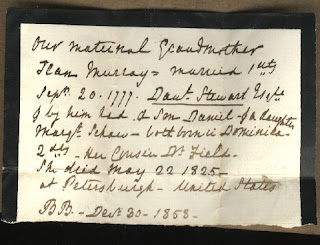 Our maternal Grandmother
Jean Murray = married 1stly
Septr 20. 1777. Danl. Stewart Esqre
& by him had a Son Daniel - & a daughter
Margt. - both born in Dominika -
2dly - Her Cousin Dr. Field -
She died May 22 1825 -
at Petersburgh - United States
BB. - Decr 30 - 1853 -